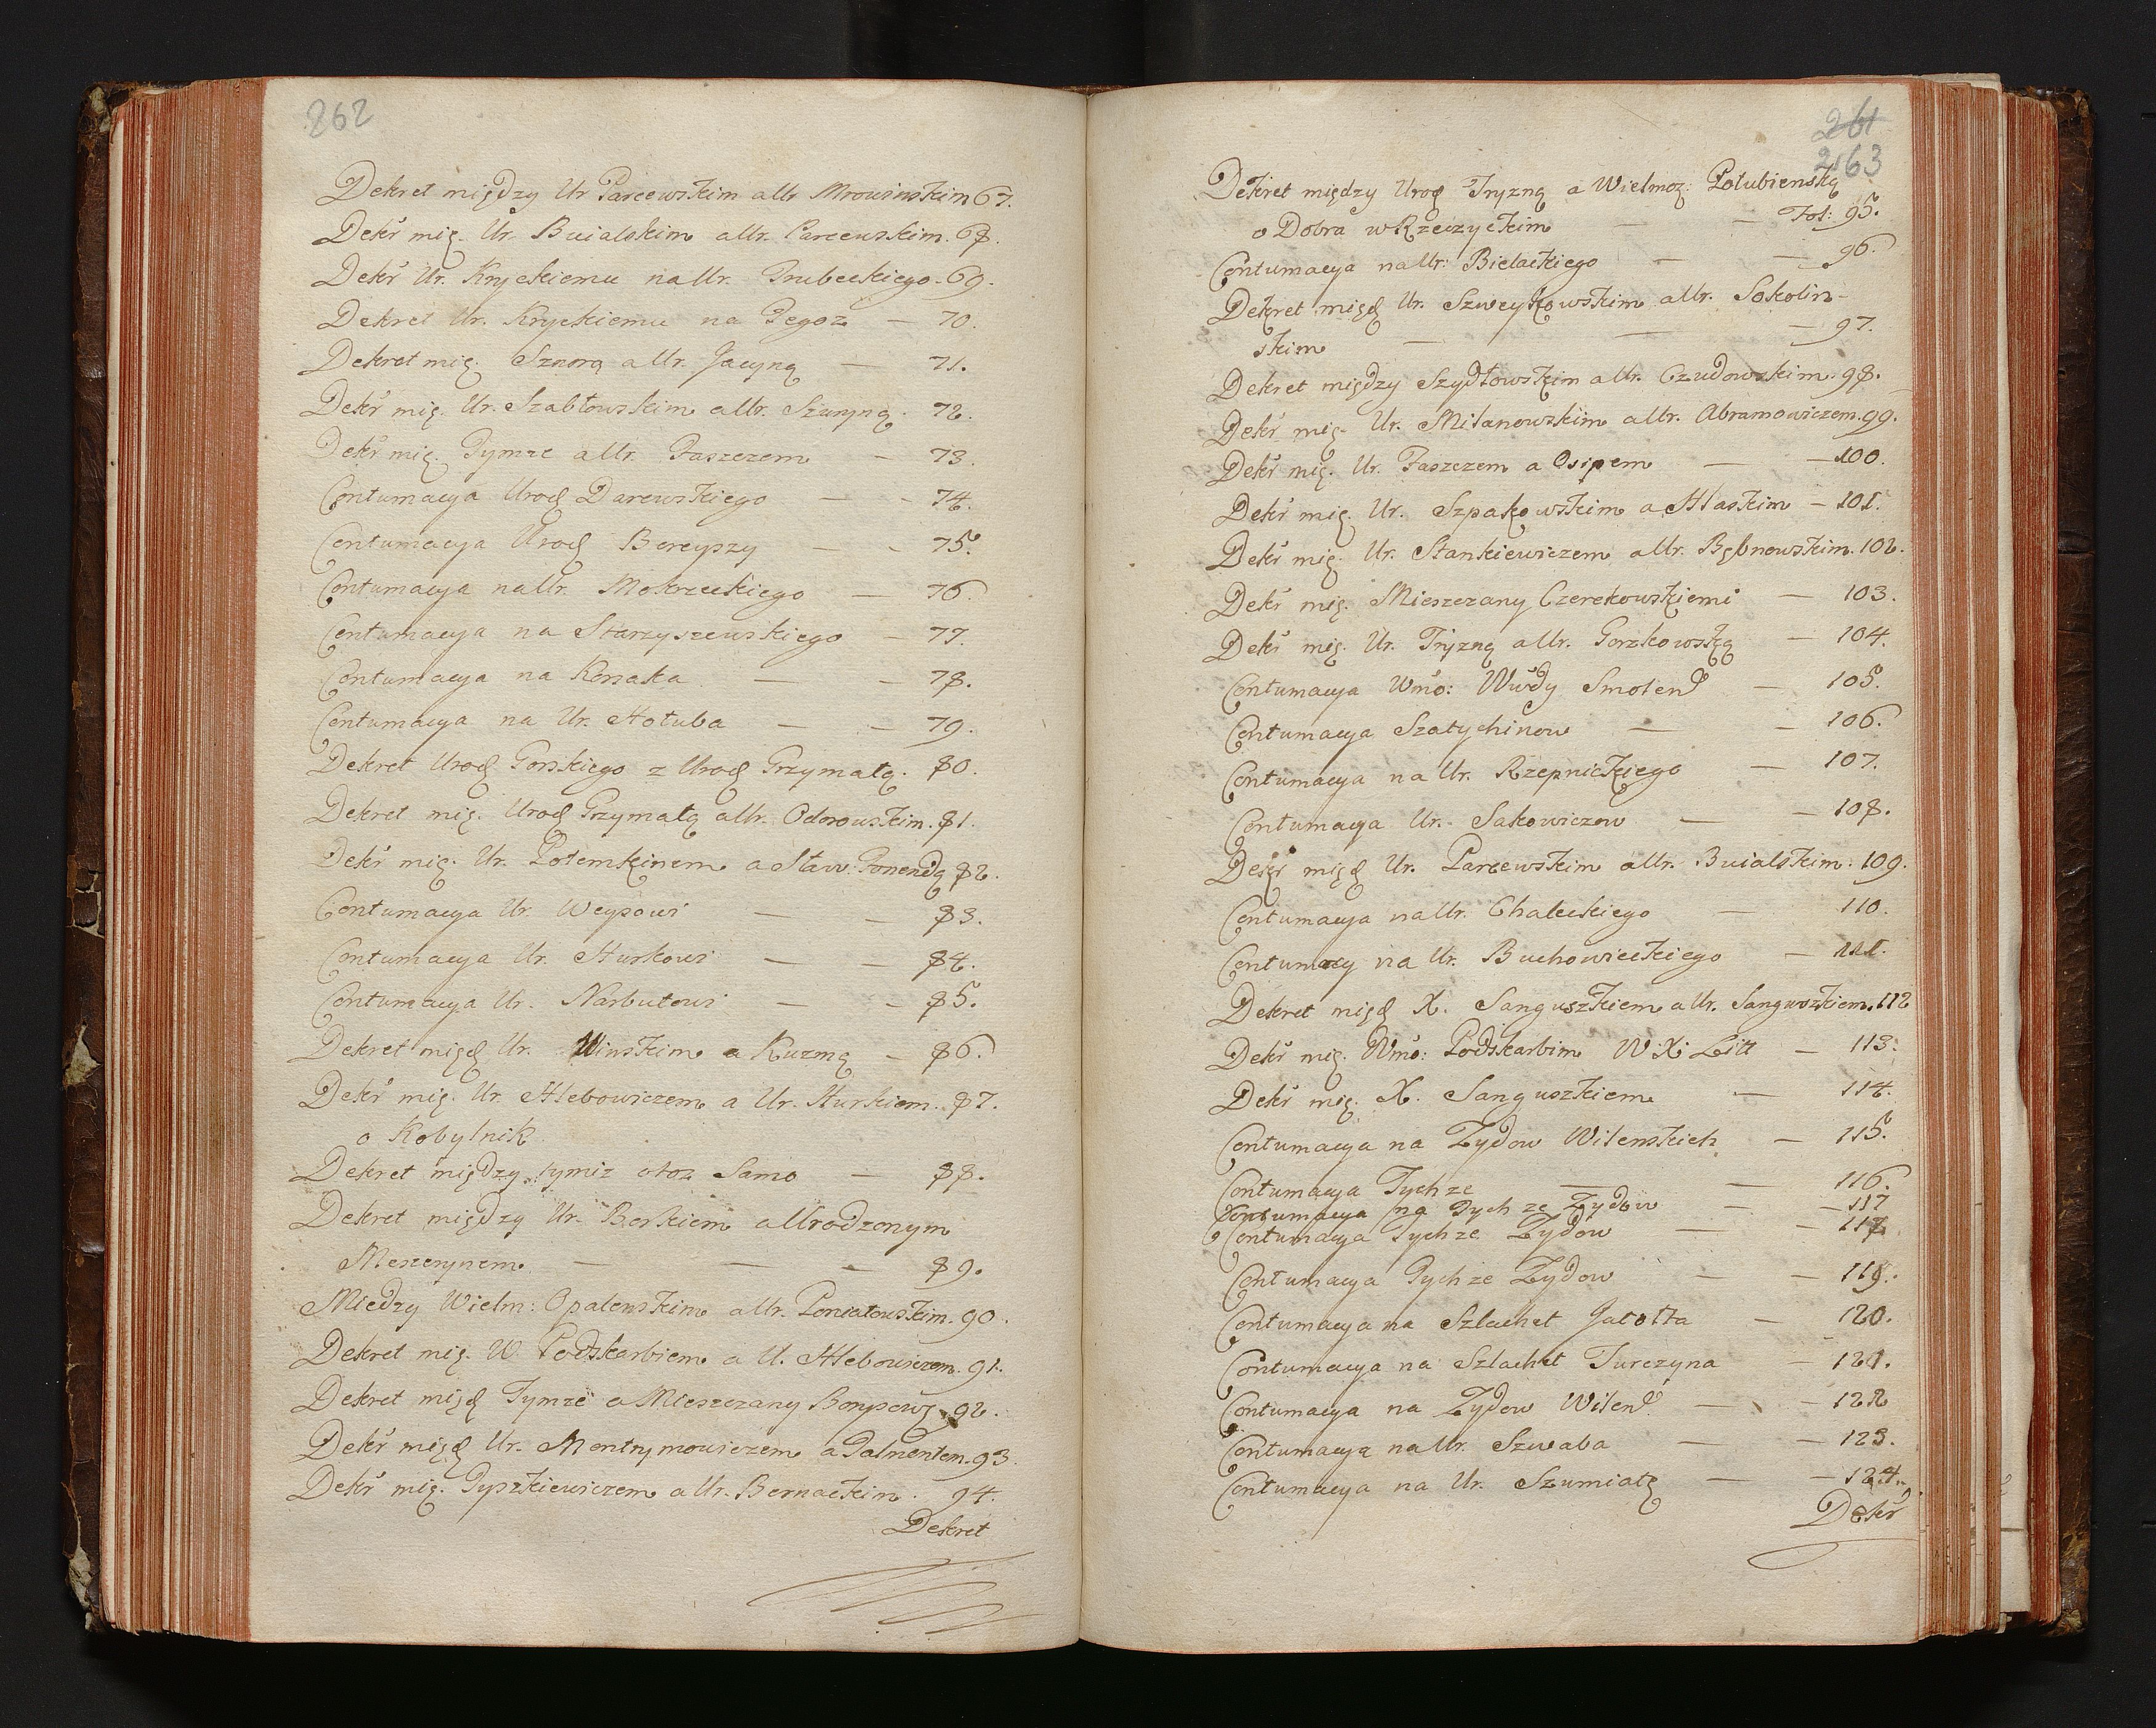 262
Dekret między Ur Parcewskim a Ur Mrowinskim 67.
Dekr mię. Ur. Buialskim a Ur. Parcewskim. 68.
Dekr Ur. Kryckiemu na Ur. Trubeckiego. 69.
Dekret Ur. Kryckiemu na Tegoz — 70.
Dekret mię. Sznorą a Ur. Jacyną — 71.
Dekr mię. Ur. Szabłowskim a Ur. Szuryną. 72.
Dekr mię. Tymze a Ur. Paszczem — 73.
Contumacya Urod Darewskiego — - 74.
Contumacya Urod Bereyszy — - 75.
Contumacya na Ur. Mokrzeckiego — 76.
Contumacya na Starzyszewskiego — 77.
Contumacya na Korsaka — — 78.
Contumacya na Ur. Hołuba — — 79.
Dekret Urod Gorskiego z Urod Grzymałą. 80.
Dekret mię. Urod Grzymałą a Ur. Odorowskim. 81.
Dekr mię. Ur. Potemkinem a Sław: Ponendą 82.
Contumacya Ur. Weysowi — — 83.
Contumacya Ur. Hurkowi — — 84.
Contumacya Ur. Narbutowi — - 85.
Dekret międ Ur. Uinskim a Kuzmą — 86.
Dekr mię. Ur. Hlebowiczem a Ur. Hurkiem. 87.
o Kobylnik
Dekret między tymiz otoz Samo — 88.
Dekret między Ur. Borkiem a Urodzonym
Meszerynem — — — 89.
Miedzy Wielm: Opalenskim a Ur. Poniatowskim. 90.
Dekret mię. W. Podskarbiem a U. Hlebowiczem. 91.
Dekret międ Tymze a Mieszczany Borysows. 92.
Dekr międ Ur. Montrymowiczem a Dalmentem. 93.
Dekr mię. Tyszkiewiczem a Ur. Bernackim. 94.
Dekret
261
263
Dekret między Urod Tryzną a Wielmoz: Połubienską
o Dobra w Rzeczyckim — — Fol: 95.
Contumacya na Ur: Bielackiego — — 96.
Dekret międ Ur. Szweykowskim a Ur. Sokolin-
skim — — — 97.
Dekret między Szydłowskim a Ur. Czudowskim. 98.
Dekr mię. Ur. Milanowskim a Ur. Abramowiczem. 99.
Dekr mię. Ur. Paszczem a Osipem — — 100.
Dekr mię. Ur. Szpakowskim a Hlaskim — 101.
Dekr mię. Ur. Stankiewiczem a Ur. Bębnowskim. 102.
Dekr mię. Mieszczany Czerekowskiemi — 103.
Dekr mię. Ur. Tryzną a Ur. Gorzkowską — 104.
Contumacya Wmo: Wwdy Smolens — 105.
Contumacya Szatychinow — — 106.
Contumacya na Ur. Rzepnickiego — 107.
Contumacya Ur. Sakowiczow — — 108.
Dekr międ Ur. Parcewskim a Ur. Buialskim. 109.
Contumacya na Ur. Chaleckiego — 110.
Contumacy na Ur. Buchowieckiego — 111.
Dekret międ X. Sanguszkiem a Ur. Sanguszkiem. 112
Dekr mię. Wmo: Podskarbim W: X: Litt — 113.
Dekr mię. X. Sanguszkiem — 114.
Contumacya na Zydow Wilenskich — 115.
Contumacya Tychze — — 116.
Contumacya na Tychze Zydow — — 117
Contumacya Tychze Zydow — — 118
Contumacya Tychze Zydow — — 119.
Contumacya na Szlachet Jatołta — 120.
Contumacya na Szlachet Turczyna — 121.
Contumacya na Zydow Wilens — — 122
Contumacya na Ur. Szwaba — — 123.
Contumacya na Ur. Szumiatę — — 124.
Dekr